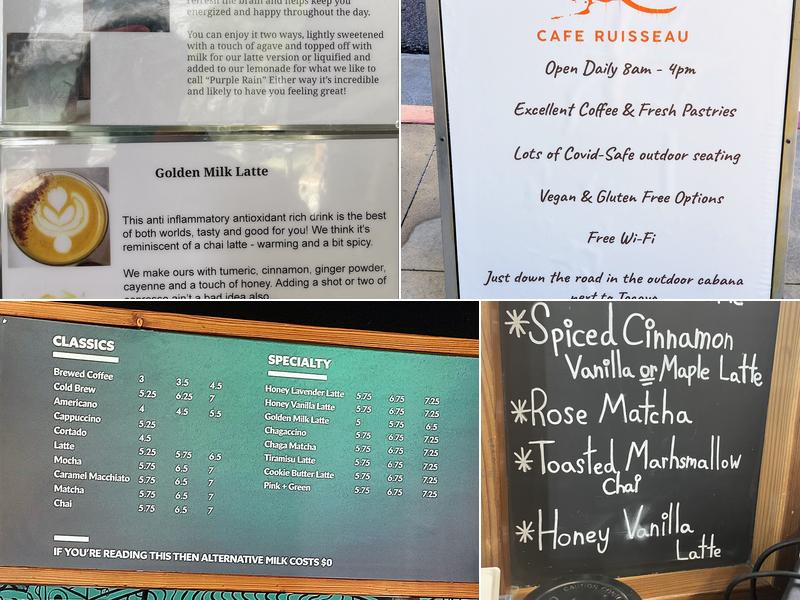 refresh the brain and helps keep you
energized and happy throughout the day.
You can enjoy it two ways, lightly sweetened
with a touch of agave and topped off with
milk for our latte version or liquified and
added to our lemonade for what we like to
call "Purple Rain" Either way it's incredible
and likely to have you feeling great!
Golden Milk Latte
This anti inflammatory antioxidant rich drink is the best
of both worlds, tasty and good for you! We think it's
reminiscent of a chai latte - warming and a bit spicy.
We make ours with tumeric, cinnamon, ginger powder,
cayenne and a touch of honey. Adding a shot or two of
espresso ain't a bad idea also
CAFE RUISSEAU
Open Daily 8am - 4pm
Excellent Coffee & Fresh Pastries
Lots of Covid-Safe outdoor seating
Vegan & Gluten Free Options
Free Wi-Fi
Just down the road in the outdoor cabana
next to
CLASSICS
Brewed Coffee 3 3.5 4.5
Cold Brew 5.25 6.25 7
Americano 4 4.5 5.5
Cappuccino 5.25
Cortado 4.5
Latte 5.25 5.75 6.5
Mocha 5.75 6.5 7
Caramel Macchiato 5.75 6.5 7
Matcha 5.75 6.5 7
Chai 5.75 6.5 7
SPECIALTY
Honey Lavender Latte 5.75 6.75 7.25
Honey Vanilla Latte 5.75 6.75 7.25
Golden Milk Latte 5 5.75 6.5
Chagaccino 5.75 6.75 7.25
Chaga Matcha 5.75 6.75 7.25
Tiramisu Latte 5.75 6.75 7.25
Cookie Butter Latte 5.75 6.75 7.25
Pink + Green 5.75 6.75 7.25
IF YOU'RE READING THIS THEN ALTERNATIVE MILK COSTS $0
*Spiced Cinnamon
Vanilla or Maple Latte
*Rose Matcha
*Toasted Marhsmallow
Chai
*Honey Vanilla
Latte